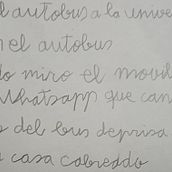 el autobus a la unive
n el autobus
do miro el movil
Whatsapp que can
s del bus deprisa
a casa cabreado